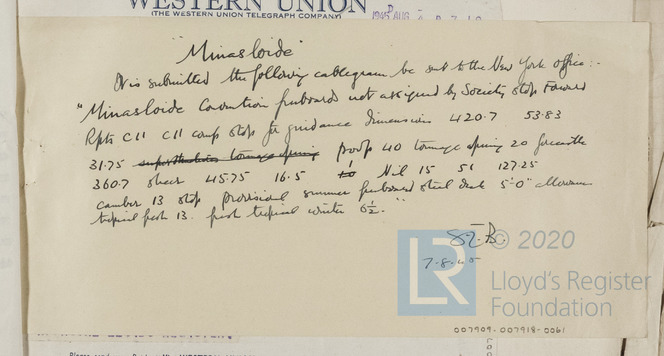 WESTERN UNION
(THE WESTERN UNION TELEGRAPH COMPANY)
1945 AUG
"Minasloide"
It is submitted the following cablegram be sent to the New York office:-
"Minasloide Convention freeboards not assigned by Society stop Forward
Rpts C11 C11 comp stop for guidance dimensions 420.7 53.83
31.75 superstructures tonnage opening poop 40 tonnage opening 20 forecastle
360.7 sheer 45.75 16.5 1 Nil 15 51 127.25
camber 13 stop provisional summer freeboard steel deck 5'-0" allowance
tropical fresh 13. fresh tropical winter 6½."
7.8.45
© 2020
LR
Lloyd's Register
Foundation
007909-007918-0061